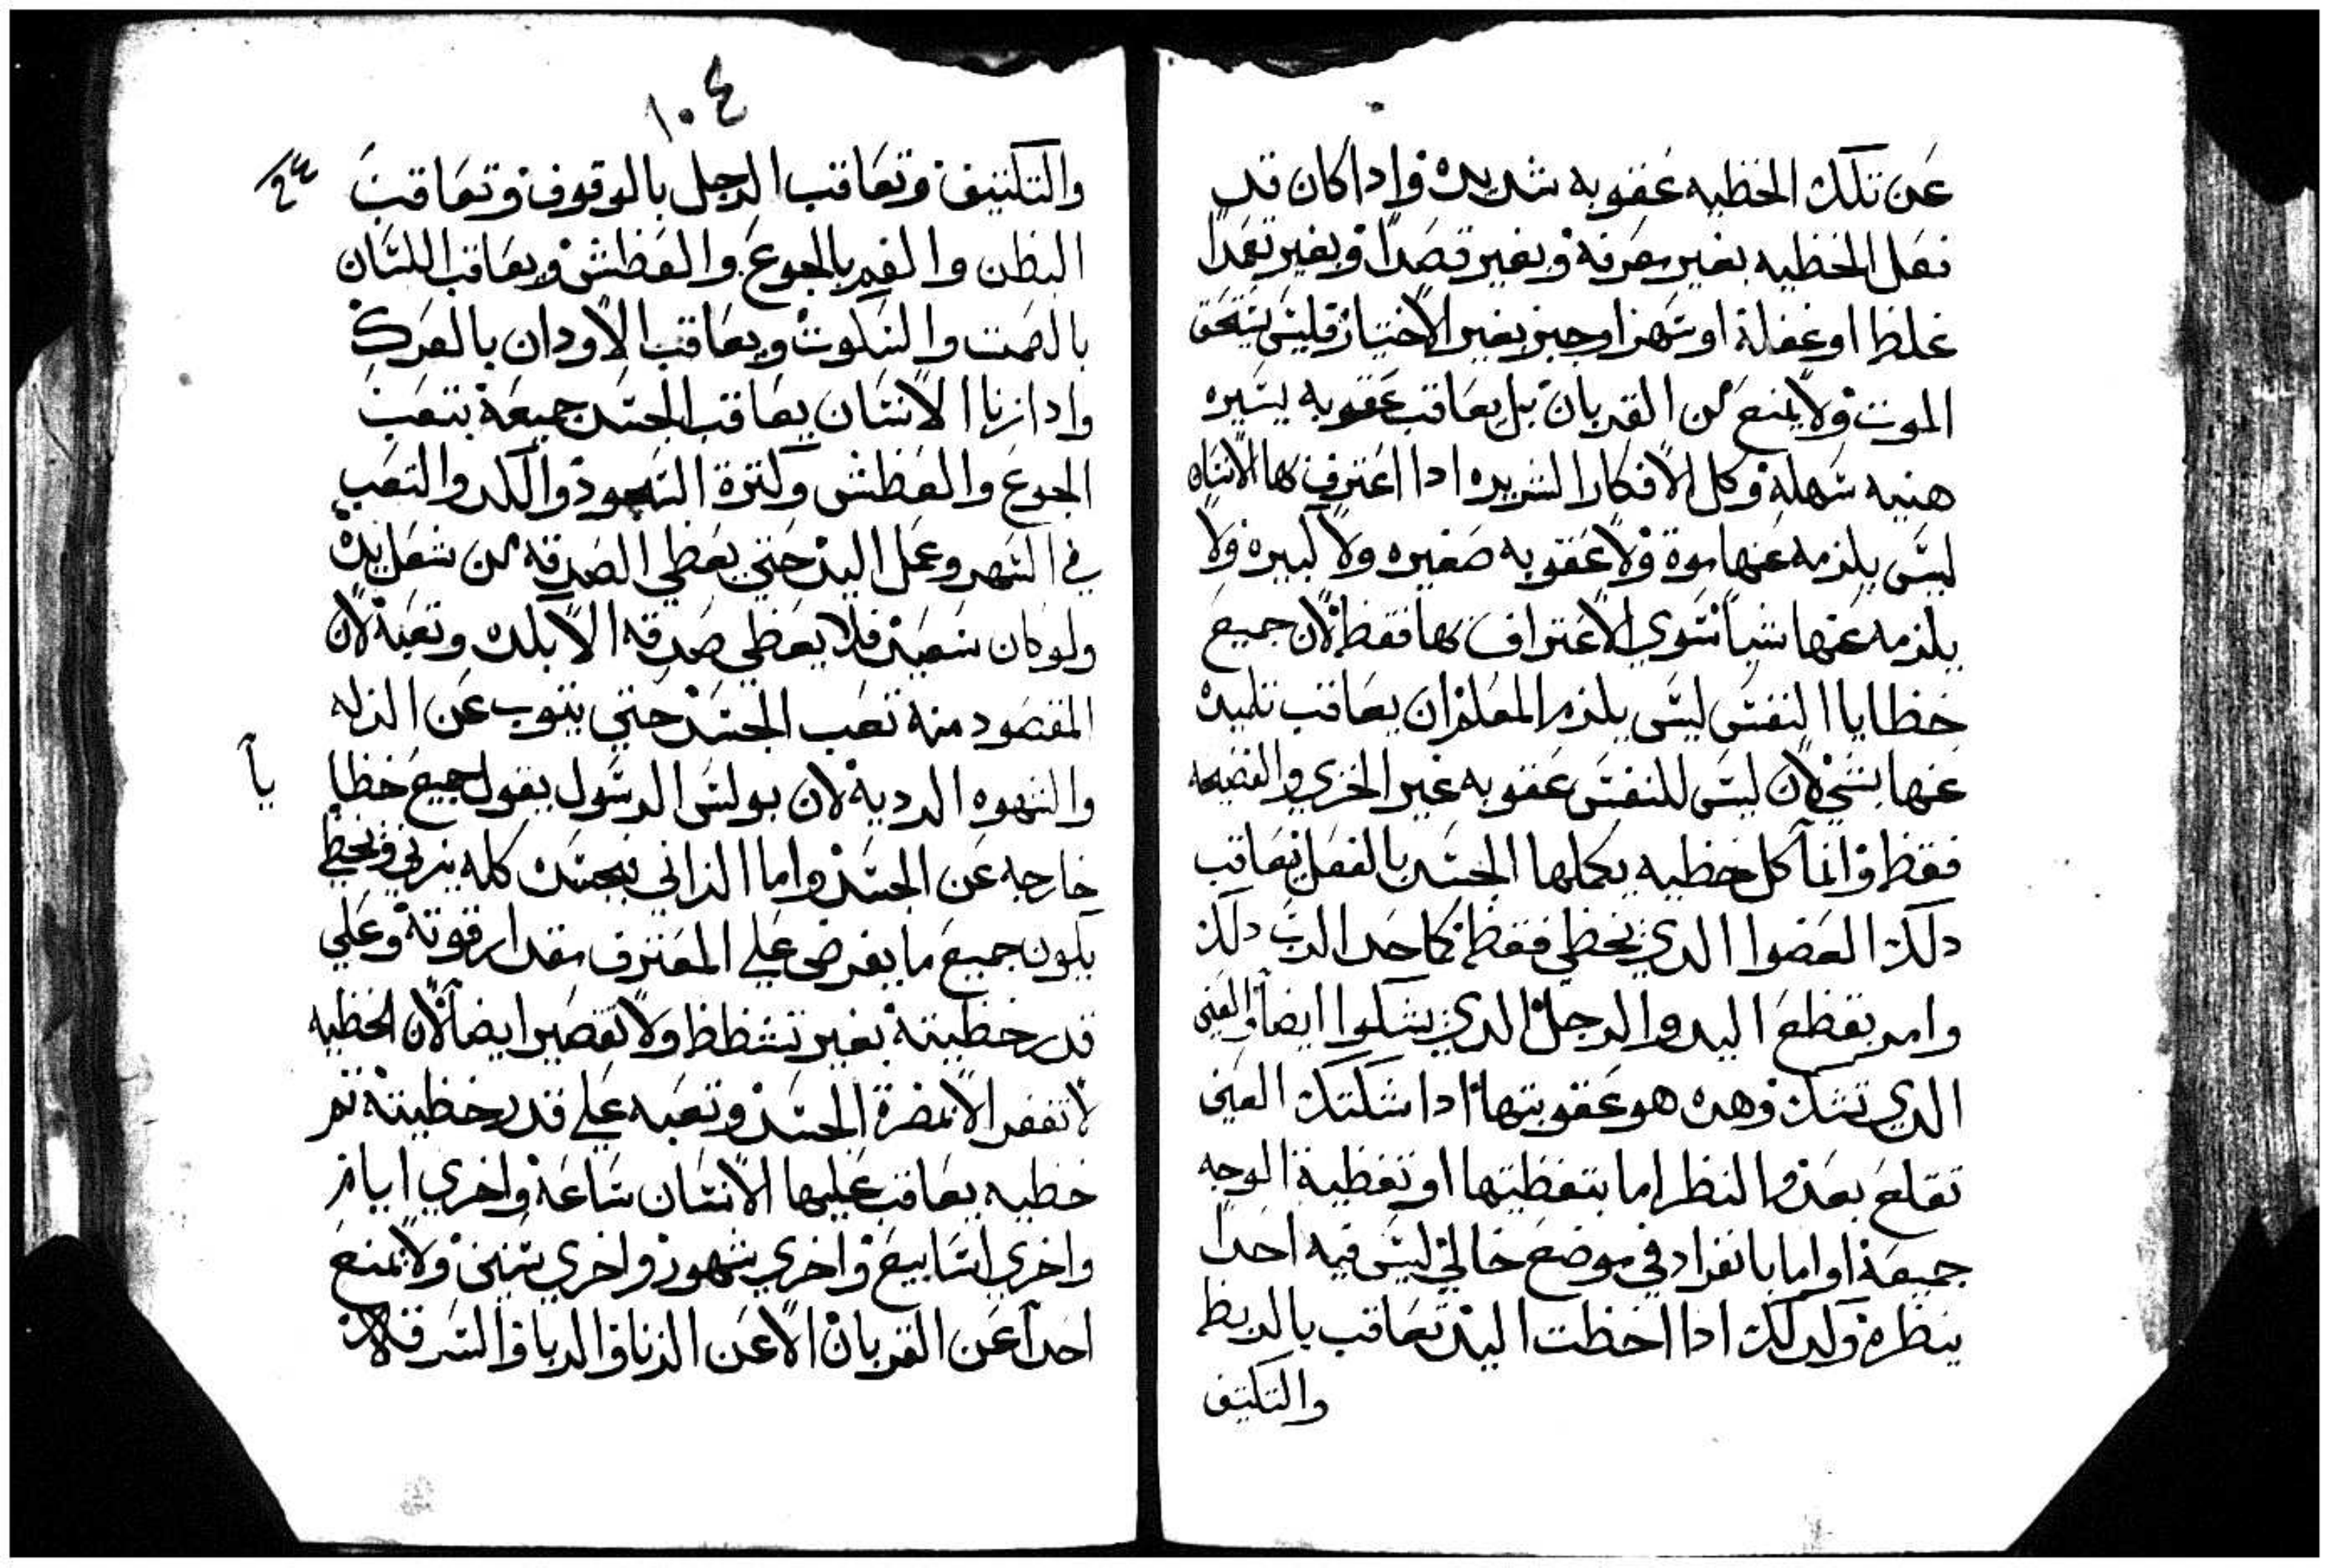 عن تلك الخطيه عقوبه شديده واداكان قد
فعل الخطيه بغير معرفة وبغير قصدا وبغير تعمدا
غلطا اوغفلة اوسهزا وجبز بغير الاختيار فليس يستحق
الموت ولايمنع من القربان بل يعاقب عقوبه يسيره
هنيه سهلة وكل الافكار الشريره ادا اعترف بها الانسان
ليس يلزمه عنها موة ولا عقوبه صغيره ولا كبيره ولا
يلزمه عنها شيا سوي الاعتراف بها فقط لان جميع
خطايا النفس ليس يلزم المعلم ان يعاقب تلميده
عنها بشي لان ليس للنفس عقوبه غير الخزي والفضيحه
فقط وانما كل خطيه يكملها الجسد بالفعل يعاقب
دلك العضوا الدي يخطي فقط كما حد الرب دلك
وامر بقطع اليد والرجل الدي يشكوا ايضا والعين
الدي تشك وهده هو عقوبتها ادا شكتك العين
تقلع بعدم النظر اما بتغطيتها او تغطية الوجه
جميعة اواما بانفراد في موضع خالي ليس فيه احدا
ينظره ولدلك ادا اخطت اليد تعاقب بالربط
والتكتيف
١٠٤
والتكتيف وتعاقب الرجل بالوقوف وتعاقب
البطن والفم بالجوع والعطش ويعاقب اللسان
بالصمت والسكوت ويعاقب الاودان بالعرك
وادا زنا الانسان يعاقب الجسد جميعة بتعب
الجوع والعطش وكترة السجود والكد والتعب
في السهر وعمل اليد حتي يعطي الصدقه من شغل يده
ولوكان شعبن فلا يعطي صدقه الا بكده وتعبة لان
المقصود منه تعب الجسد حتي يتوب عن الزله
والشهوه الرديه لان بولس الرسول يقول جميع خطا
يا
خارجه عن الجسد واما الزاني فبجسده كله يزني ويخطي
يكون جميع ما يفرض علي المعترف مقدار قوته وعلي
قدر خطيتة بغير تشطط ولا تقصير ايضا لان الخطيه
لا تغفر الابمضرة الجسد وتعبه علي قدر خطيتة تم
خطيه يعاقب عليها الانسان ساعة واخري ايام
واخري اسابيع واخري شهور واخري سنين ولايمنع
احدا عن القربان الاعن الزنا والربا والسرقة لان